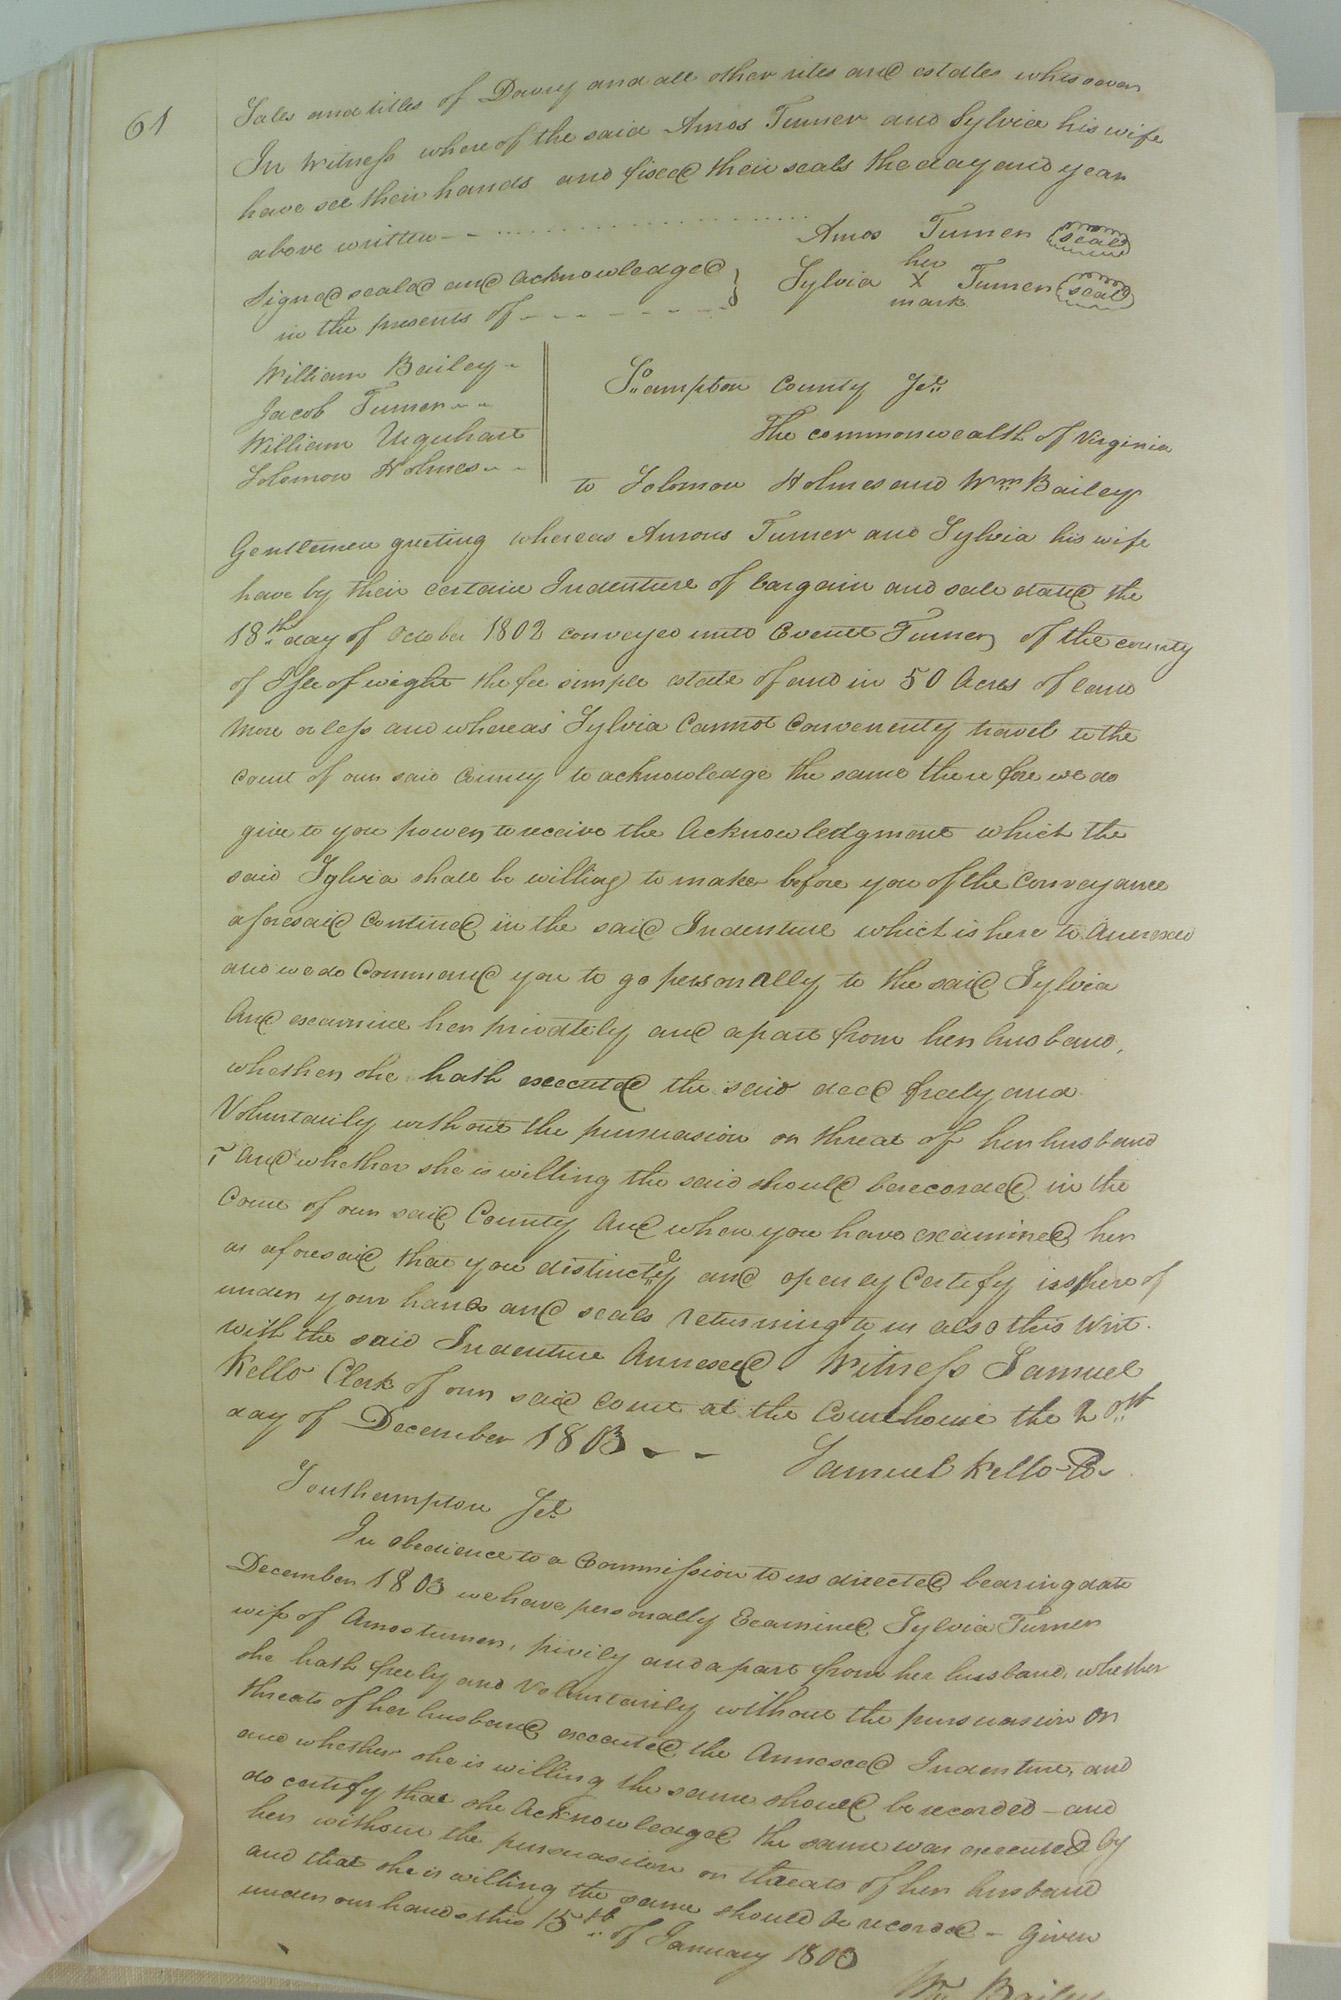 61
Sales and titles of Dowry and all other rites and estates whisoever
In Witness where of the said Amos Turner and Sylvia his wife
have set their hands and fixed their seals the day and year
above written
Amos Turner seal
Signed sealed and acknowledged } Sylvia her X mark Turner seal
in the presents of
William Bailey
Jacob Turner
William Urquhart
Solomon Holmes
So.ampton County Sct
The commonwealth of Virginia
to Solomon Holmes and Wm Bailey
Gentlemen greeting whereas Amous Turner and Sylvia his wife
have by their certain Indenture of bargain and sale dated the
18th day of October 1802 conveyed unto Everett Turner of the county
of Isle of wight the fee simple estate of and in 50 Acres of land
More or less and whereas Sylvia Cannot Conveniently travel to the
Court of our said County to acknowledge the same there fore we do
give to you power to receive the Acknowledgment which the
said Sylvia shall be willing to make before you of the Conveyance
aforesaid Contined in the said Indenture which is here to Annexed
and we do Command you to go personally to the said Sylvia
And examine her privately and apart from her husband,
whether she hath executed the said deed freely and
Voluntarily without the pursuasion or threat of her husband
And whether she is willing the said should be recorded in the
Court of our said County And when you have examined her
as aforesaid that you distinctly and openly Certify us here of
under your hands and seals returning to us also this Writ
with the said Indenture Annexed Witness Samuel
Kello Clerk of our said Court at the Courthouse the 20th
day of December 1803
Samuel Kello
Southampton Sct
In obedience to a Commission to us directed bearing date
December 1803 we have personally Examined Sylvia Turner
wife of Amos turner, privily and apart from her husband, whether
she hath freely and Voluntarily without the pursuasion or
threats of her husband executed the Annexed Indenture, and
and whether she is willing the same should be recorded - and
do certify that she Acknowledged the same was executed by
her without the pursuasion or threats of her husband
and that she is willing the same should be recorded - Given
under our hands this 15th of January 1803
Wm Bailey